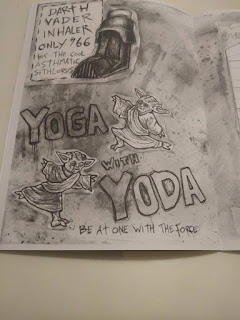 DARTH
VADER
INHALER
ONLY 966
BE THE COOL
ASTHMATIC
SITHLORD
YOGA
WITH
YODA
BE AT ONE WITH THE FORCE